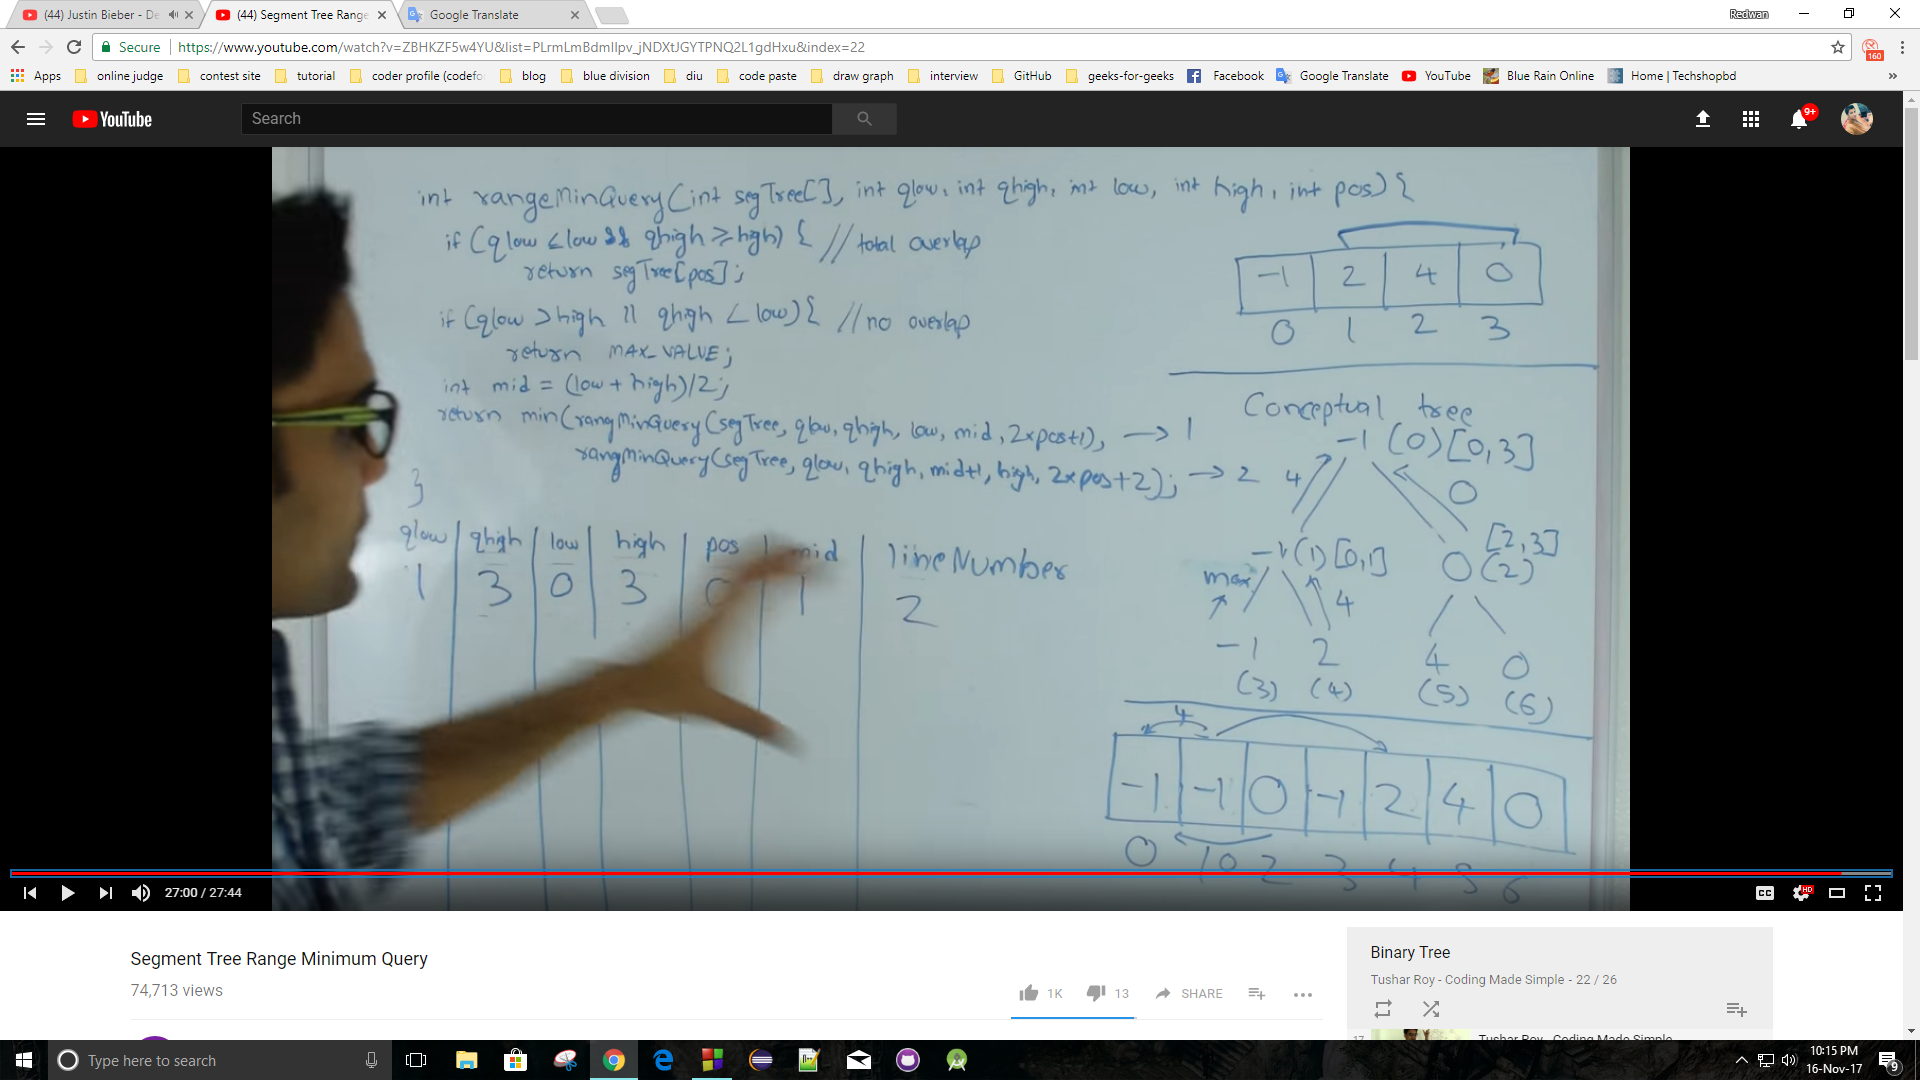 (44) Justin Bieber - De
(44) Segment Tree Range
Google Translate
Redwan
Secure
https://www.youtube.com/watch?v=ZBHKZF5w4YU&list=PLrmLmBdmIlpv_jNDXtJGYTPNQ2L1gdHxu&index=22
160
Apps online judge contest site tutorial coder profile (codefo blog blue division diu code paste draw graph interview GitHub geeks-for-geeks Facebook Google Translate YouTube Blue Rain Online Home | Techshopbd »
YouTube
Search
9+
int rangeMinQuery(int segTree[], int qlow, int qhigh, int low, int high, int pos){
if (qlow ≤ low && qhigh ≥ high) { // total overlap
return segTree[pos];
if (qlow > high || qhigh < low){ // no overlap
return MAX_VALUE;
int mid = (low + high)/2;
return min(rangMinQuery(segTree, qlow, qhigh, low, mid, 2xpos+1), → 1
rangMinQuery(segTree, qlow, qhigh, mid+1, high, 2xpos+2); → 2
}
qlow qhigh low high pos mid lineNumber
1 3 0 3 0 1 2
-1 2 4 0
0 1 2 3
Conceptual tree
-1 (0) [0,3]
4 0
-1 (1) [0,1]
[2,3]
0 (2)
max 4
-1 2 4 0
(3) (4) (5) (6)
4
-1 -1 0 -1 2 4 0
0 1 0 2 3 4 5 6
27:00 / 27:44
CC
HD
Segment Tree Range Minimum Query
74,713 views
1K
13
SHARE
Binary Tree
Tushar Roy - Coding Made Simple - 22 / 26
17
Tushar Roy - Coding Made Simple
Type here to search
10:15 PM
16-Nov-17
9